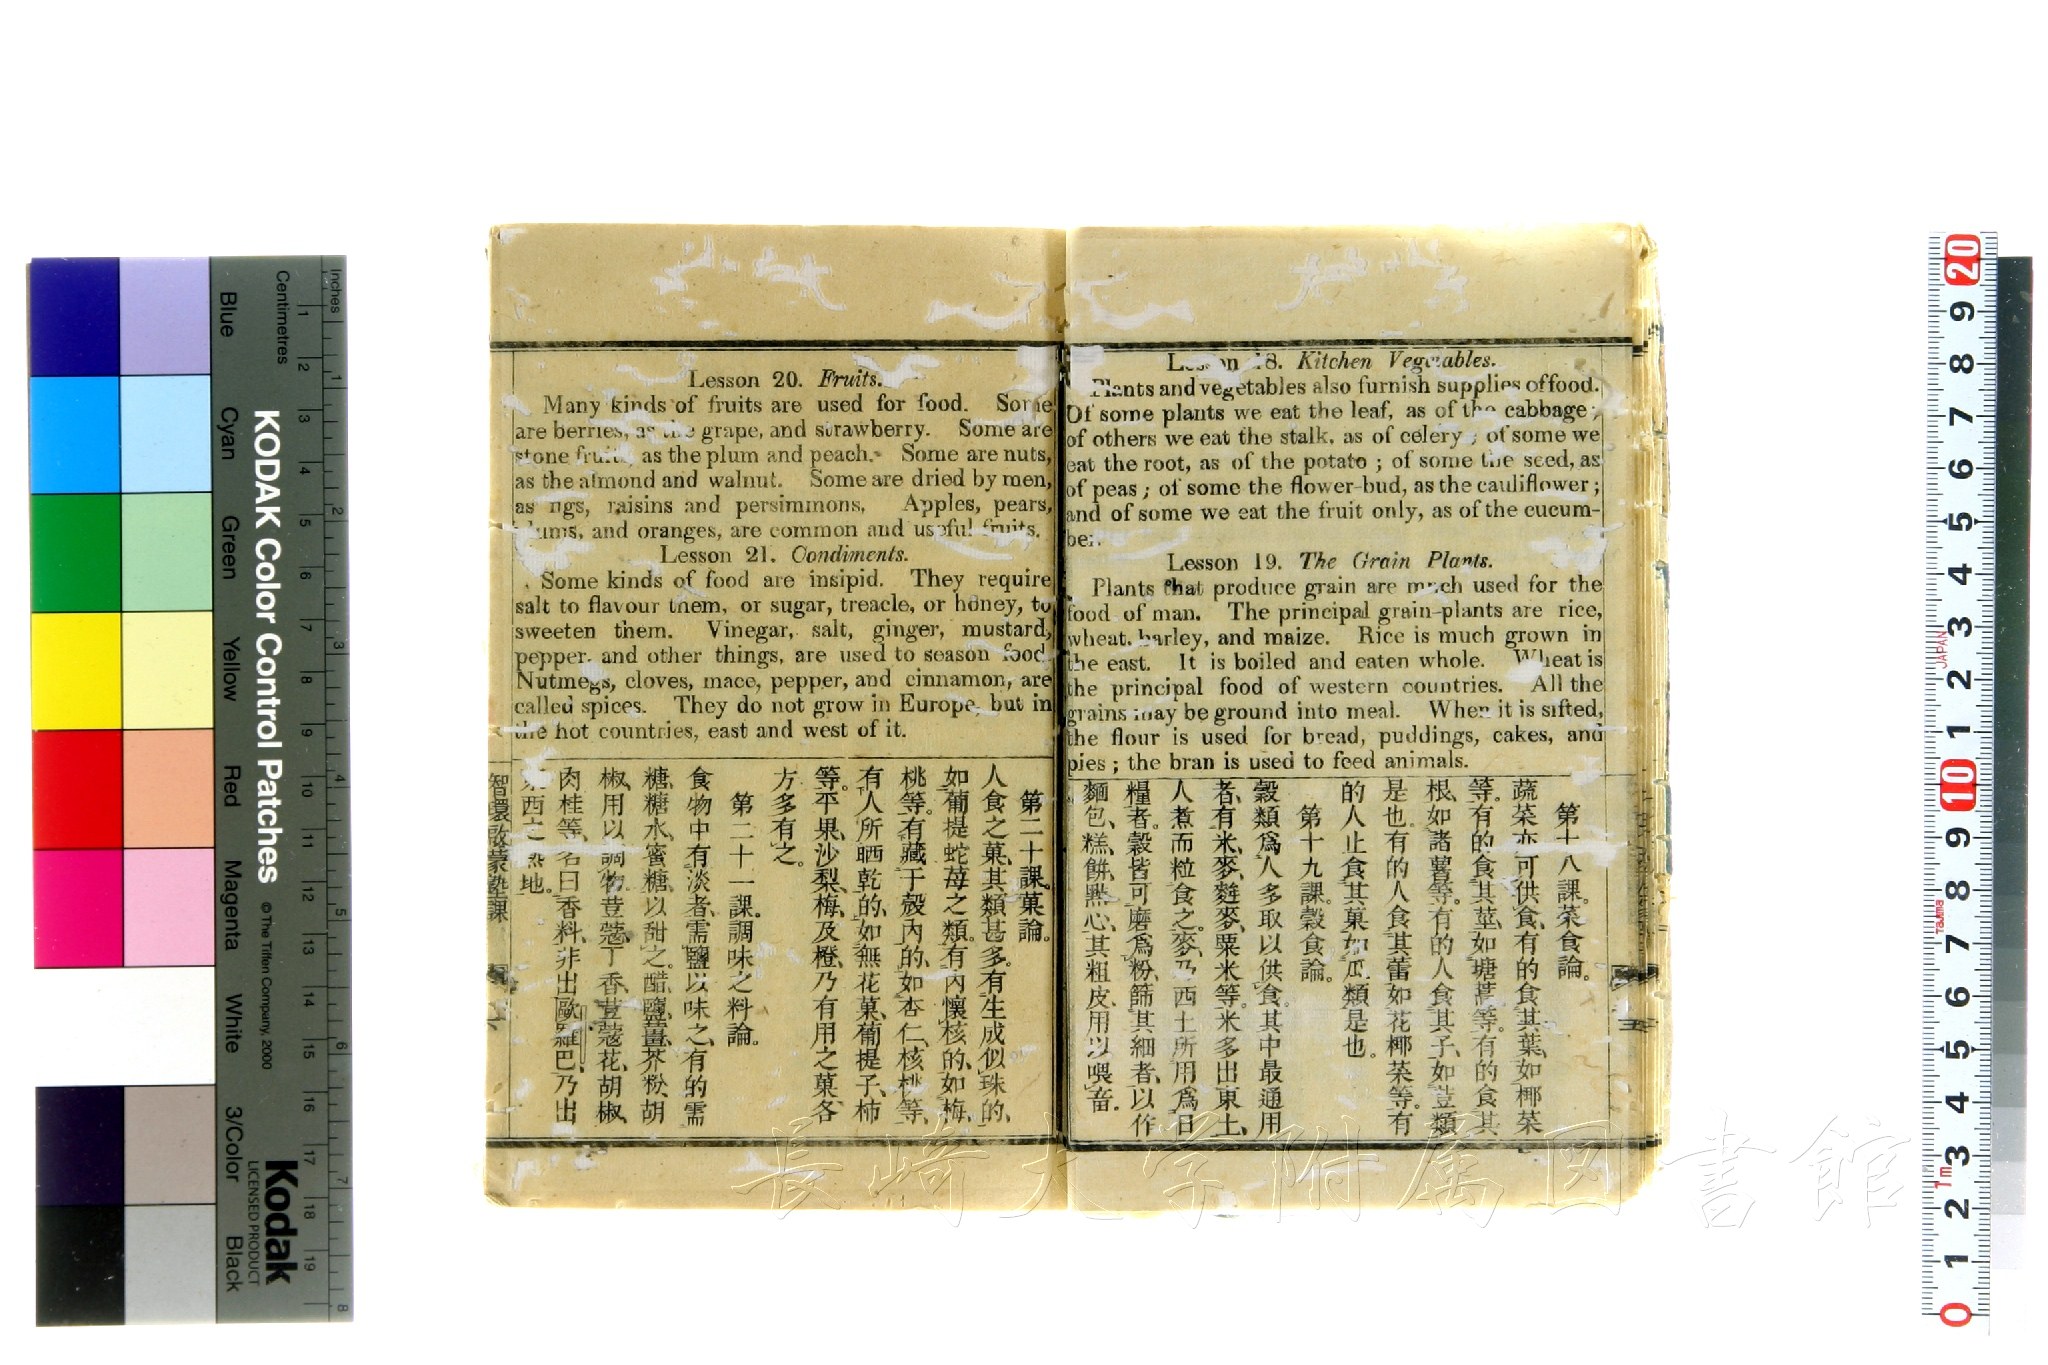 Lesson 18. Kitchen Vegetables.
Plants and vegetables also furnish supplies of food.
Of some plants we eat the leaf, as of the cabbage;
of others we eat the stalk, as of celery; of some we
eat the root, as of the potato; of some the seed, as
of peas; of some the flower-bud, as the cauliflower;
and of some we eat the fruit only, as of the cucum-
ber.
Lesson 19. The Grain Plants.
Plants that produce grain are much used for the
food of man. The principal grain-plants are rice,
wheat, barley, and maize. Rice is much grown in
the east. It is boiled and eaten whole. Wheat is
the principal food of western countries. All the
grains may be ground into meal. When it is sifted,
the flour is used for bread, puddings, cakes, and
pies; the bran is used to feed animals.
第十八課。菜食論。
蔬菜亦可供食、有的食其葉、如椰菜
等。有的食其莖、如塘蒿等。有的食其
根、如諸薯等。有的人食其子、如荳類
是也。有的人食其蕾、如花椰菜等。有
的人止食其菓、如瓜類是也。
第十九課。穀食論。
穀類爲人多取以供食。其中最通用
者、有米、麥、麰麥、粟米等。米多出東土、
人煮而粒食之。麥乃西土所用爲日
糧者。穀皆可磨爲粉、篩其細者、以作
麵包、糕、餅、點心、其粗皮、用以喂畜。
Lesson 20. Fruits.
Many kinds of fruits are used for food. Some
are berries, as the grape, and strawberry. Some are
stone fruits, as the plum and peach. Some are nuts,
as the almond and walnut. Some are dried by men,
as figs, raisins and persimmons. Apples, pears,
plums, and oranges, are common and useful fruits.
Lesson 21. Condiments.
Some kinds of food are insipid. They require
salt to flavour them, or sugar, treacle, or honey, to
sweeten them. Vinegar, salt, ginger, mustard,
pepper, and other things, are used to season food.
Nutmegs, cloves, mace, pepper, and cinnamon, are
called spices. They do not grow in Europe, but in
the hot countries, east and west of it.
第二十課。菓論。
人食之菓、其類甚多。有生成似珠的、
如葡提蛇苺之類。有內懷核的、如梅、
桃等。有藏于殼內的、如杏仁、核桃等、
有人所晒乾的、如無花菓、葡提子、柿
等。平果、沙梨、梅、及橙、乃有用之菓、各
方多有之。
第二十一課。調味之料論。
食物中有淡者、需鹽以味之、有的需
糖、糖水、蜜糖、以甜之。醋、鹽、薑、芥粉、胡
椒、用以調物。荳蔻、丁香、荳蔻花、胡椒、
肉桂等、名曰香料、非出歐羅巴、乃出
東西之熱地。
智環啟蒙塾課
長崎大学附属図書館
KODAK Color Control Patches
© The Tiffen Company, 2000
Kodak
LICENSED PRODUCT
Inches
Centimetres
1 2 3 4 5 6 7 8 9 10 11 12 13 14 15 16 17 18 19
1 2 3 4 5 6 7 8
Blue
Cyan
Green
Yellow
Red
Magenta
White
3/Color
Black
20
9
8
7
6
5
4
3
JAPAN
2
1
10
9
8
Tajima
7
6
5
4
3
1m
2
1
0